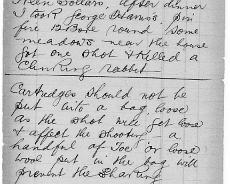 Dollars, After dinner
I took George Adams's pin
fire 12 Bore round some
meadows near the house
got one shot & killed a
rabbit
Cartridges should not be
put into a bag loose
as the shot will get loose
& affect the shooting a
handful of Tow or loose
wool put in the bag will
prevent the sharking